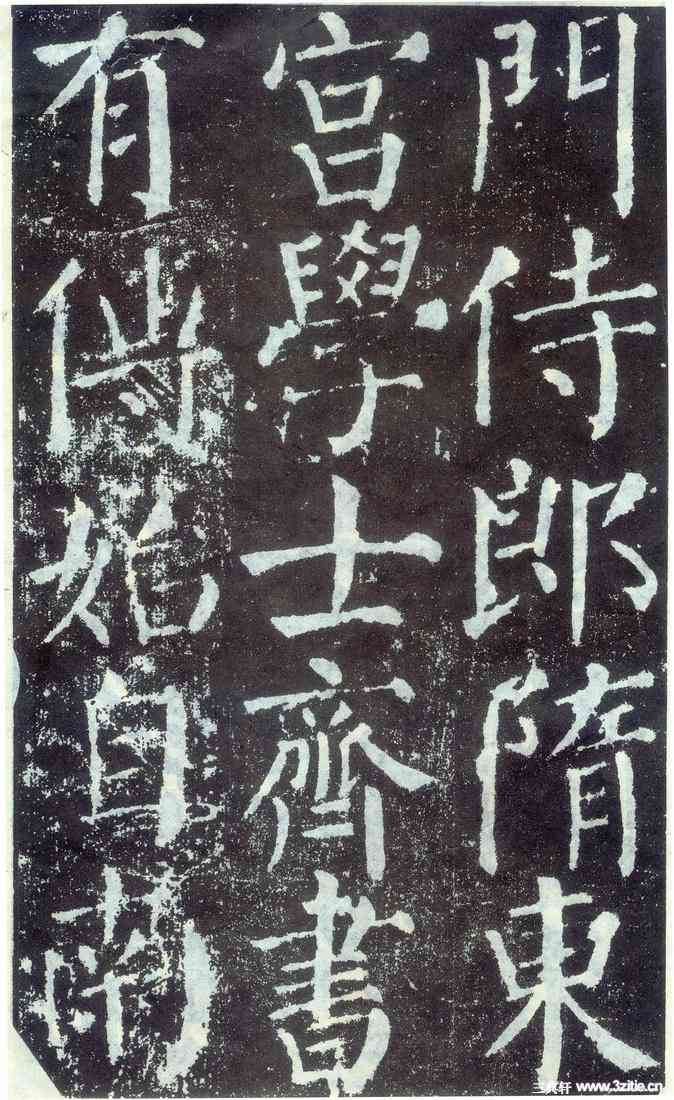 門侍郎隋東
宮學士齊書
有傳始自南
www.3zitie.cn